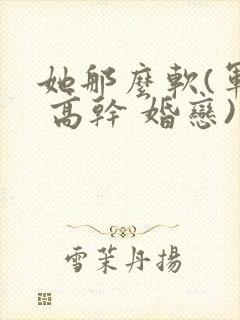 她那麼軟(軍
高幹 婚戀)
雪茉丹揚